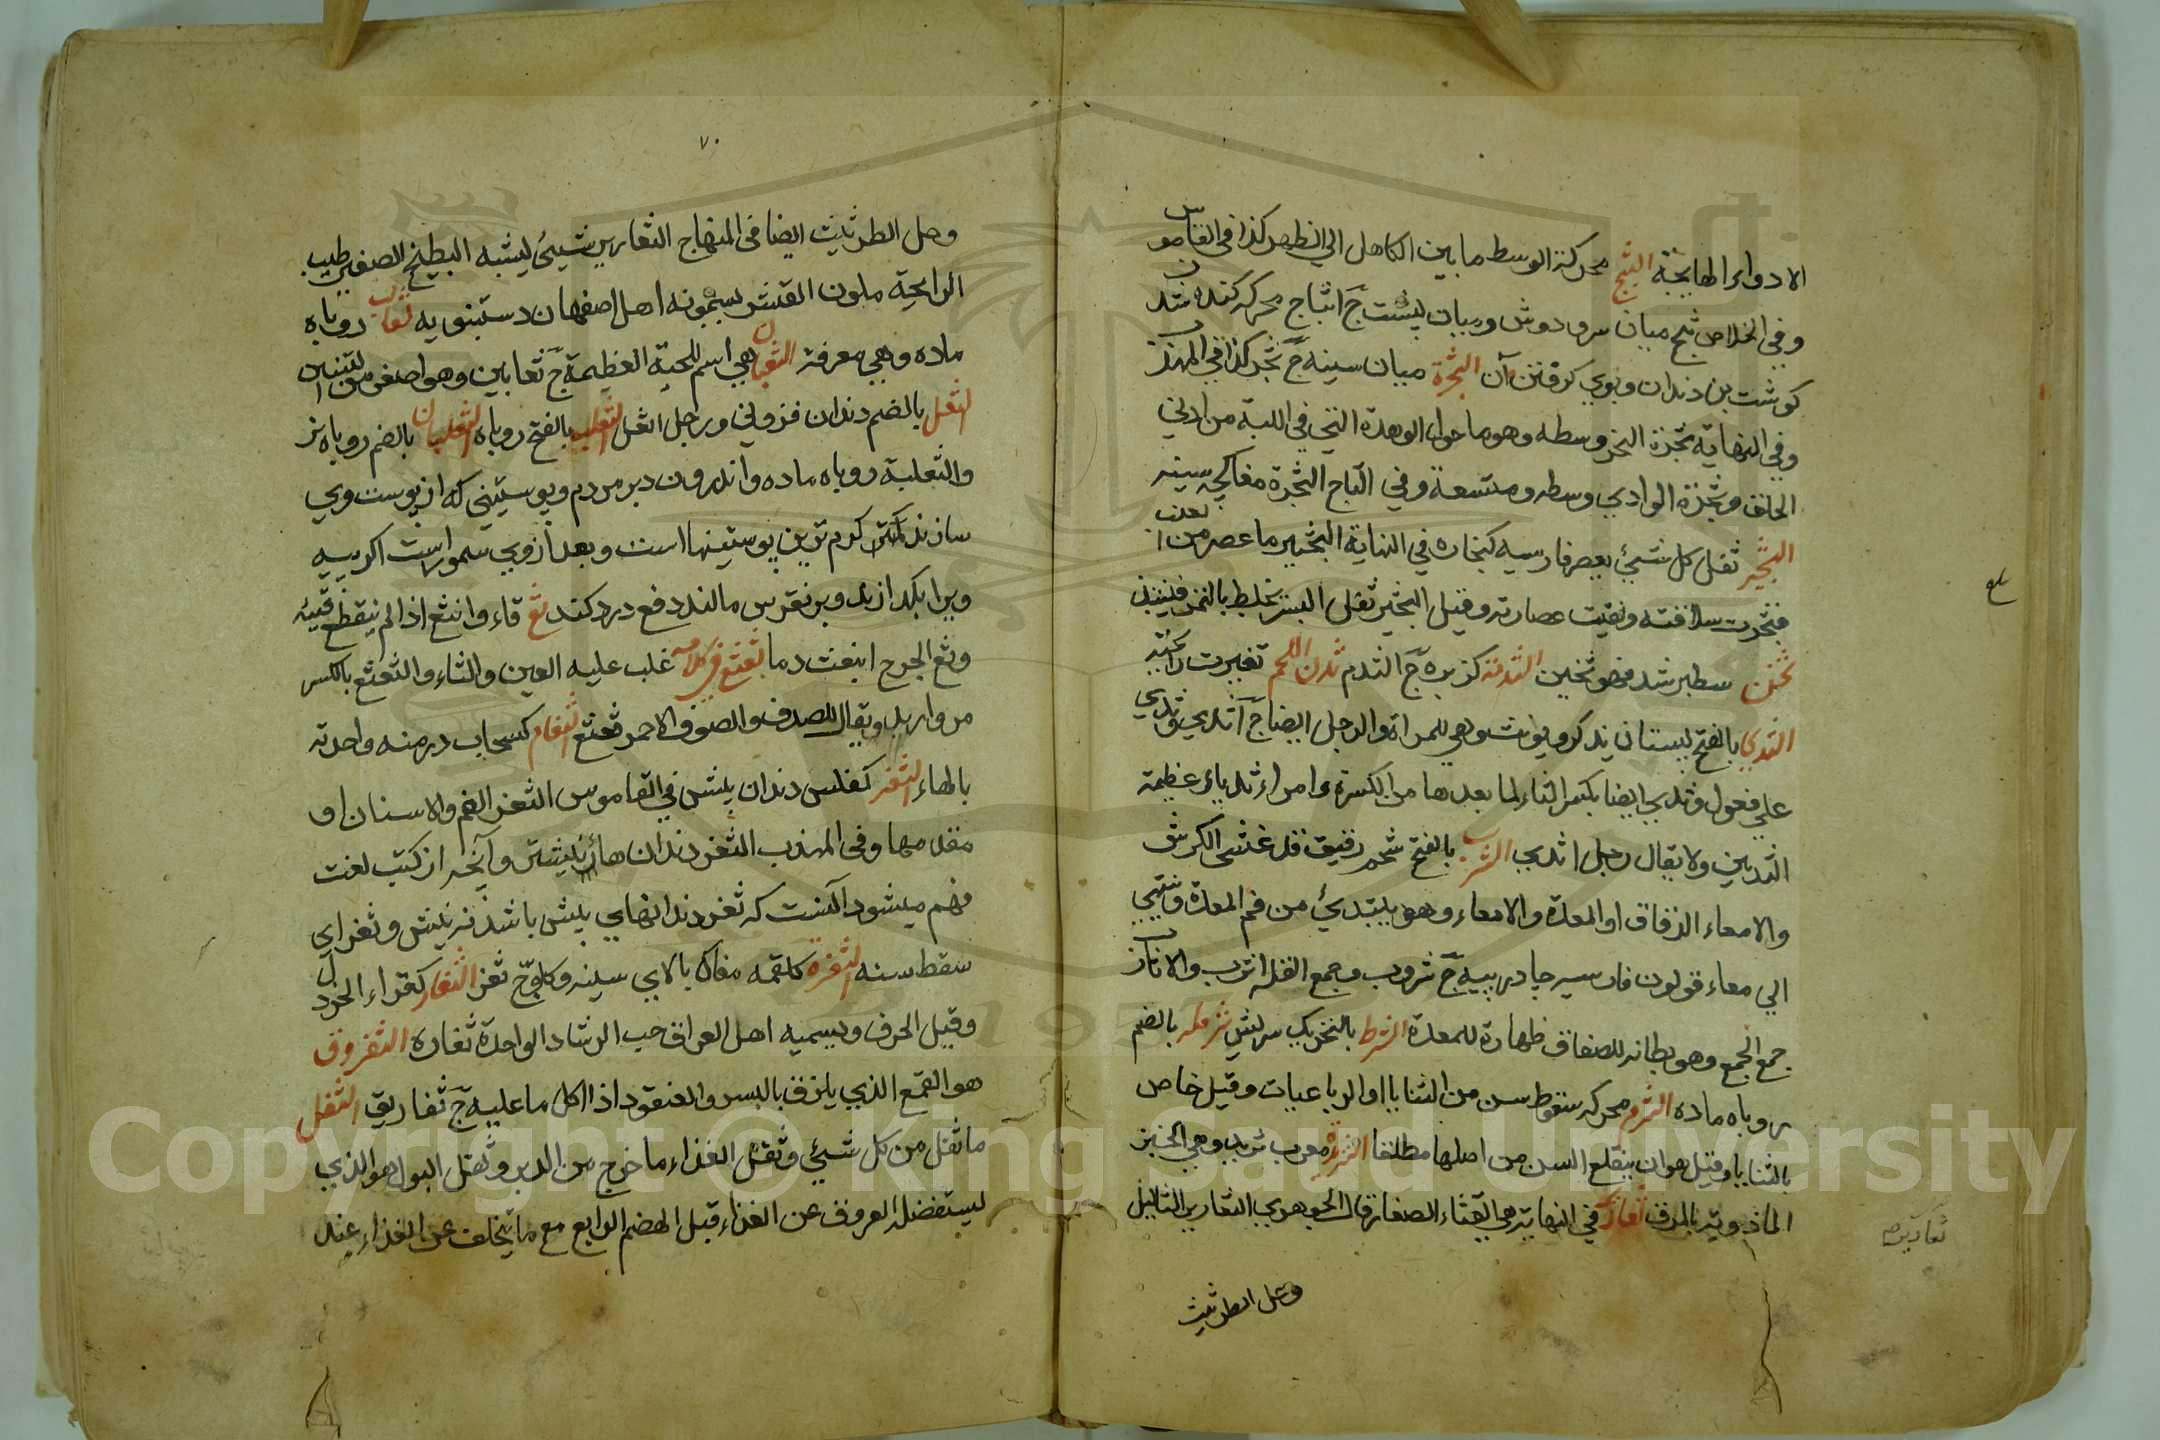 الادواء الهايجة الثبج محركة الوسط ما بين الكاهل الي الظهر كذا في القاموس
وفي الخلاص ثبج ميان سر و دوش وميان پشت ج اثباج محركه كنده شدن
كوشت بن دندان و بوي كرفتن آن الثجرة ميان سينه ج ثجر كذا في المهذب
وفي النهاية ثجرة النحر وسطه وهو ما حول الوهدة التي في اللبة من ادني
الحلق وثجرة الوادي وسطه ومتسعة وفي التاج الثجرة مغاكچه سينه
الثجير ثفل كل شيئ يعصر فارسيه كنجاره في النهاية الثجير ما عصر من العنب
فجرت سلافته وبقيت عصارته وقيل الثجير ثفل البسر يخلط بالتمر فينبذ
ثخن سطبر شد فهو ثخين الثدنة كزبره ج الثدم ثدن اللحم تغيرت رائحته
الثدي بالفتح پستان يذكر ويونث وهي للمراة والرجل ايضا ج اثدي وثدي
علي فعول وثدي ايضا بكسر الثاء لما بعدها من الكسرة وامراء ثدياء عظيمة
الثديين ولا يقال رجل اثدي الثرب بالفتح شحم رقيق قد غشي الكرش
والامعاء الزقاق او المعدة والامعاء وهو يبتدئ من فم المعدة وينتهي
الي معاء قولون فارسيه چادر پيه ج ثروب وجمع القلة اثرب والاثارب
جمع الجمع وهو بطانه للصفاق ظهارة للمعدة الثرط بالتحريك سريش ثرمله بالضم
روباه ماده الثرم محركه سقوط سن من الثنايا او الرباعيات وقيل خاص
بالثنايا وقيل هو ان ينقلع السن من اصلها مطلقا الثردة معرب تريد وهي الخبز
الماذوية بالمرق ثعارير في النهاية هي القثاء الصغار قال الجوهري الثعارير الثاليل
ثعارير
وحل الطرثيث
٧٠
وحل الطرثيث ايضا في المنهاج الثعارير شيئ ليشبه البطيخ الصغير طيب
الرايحة ملون القشر يسمونه اهل اصفهان دستنبويه ثعالب روباه
ماده وهي معرفة الثعبان هي اسم للحية العظيمة ج ثعابين وهو اصغر من التنين
الثعل بالضم دندان فزوني ورجل اثعل الثعلب بالفتح روباه الثعلبان بالضم روباه نر
والثعلبة روباه ماده واندرون دبر مردم وپوستيني كه از پوست وي
سازند كرم ترين پوستينها است وبعد ازوي سمور است اكر پيه
ويرا بكدازند وبر نقرس مالند دفع درد كند ثع قاء وانثع اذا لم ينقطع قيئه
وثع الجرح انبعث دما ثعثع في كلامه غلب عليه العين والثاء والثعثع بالكسر
مرواريد ويقال للصدف والصوف الاحمر ثعثع الثغام كسحاب درمنه واحدته
بالهاء الثغر كفلس دندان پيش في القاموس الثغر الفم والاسنان او
مقدمها وفي المهذب الثغر دندان هاي پيشين وآنچه از كتب لغت
فهم ميشود آنست كه ثغر دندانهاي پيش باشد نه پيش وثغر اي
سقط سنه الثغرة كلقمه مغاك بالاي سينه وكلو ج ثغر الثفاء كقراء الخردل
وقيل الحرف ويسميه اهل العراق حب الرشاد الواحدة ثفاءه الثفروق
هو القمع الذي يلزق بالبسر والعنقود اذا اكل ما عليه ج ثفاريق الثفل
ما ثفل من كل شيئ وثفل الغذاء ما خرج من الدبر وثفل البول هو الذي
يستفضله العروق عن الغذاء قبل الهضم الرابع مع ما يتخلف عن الغذاء عند
Copyright © King Saud University